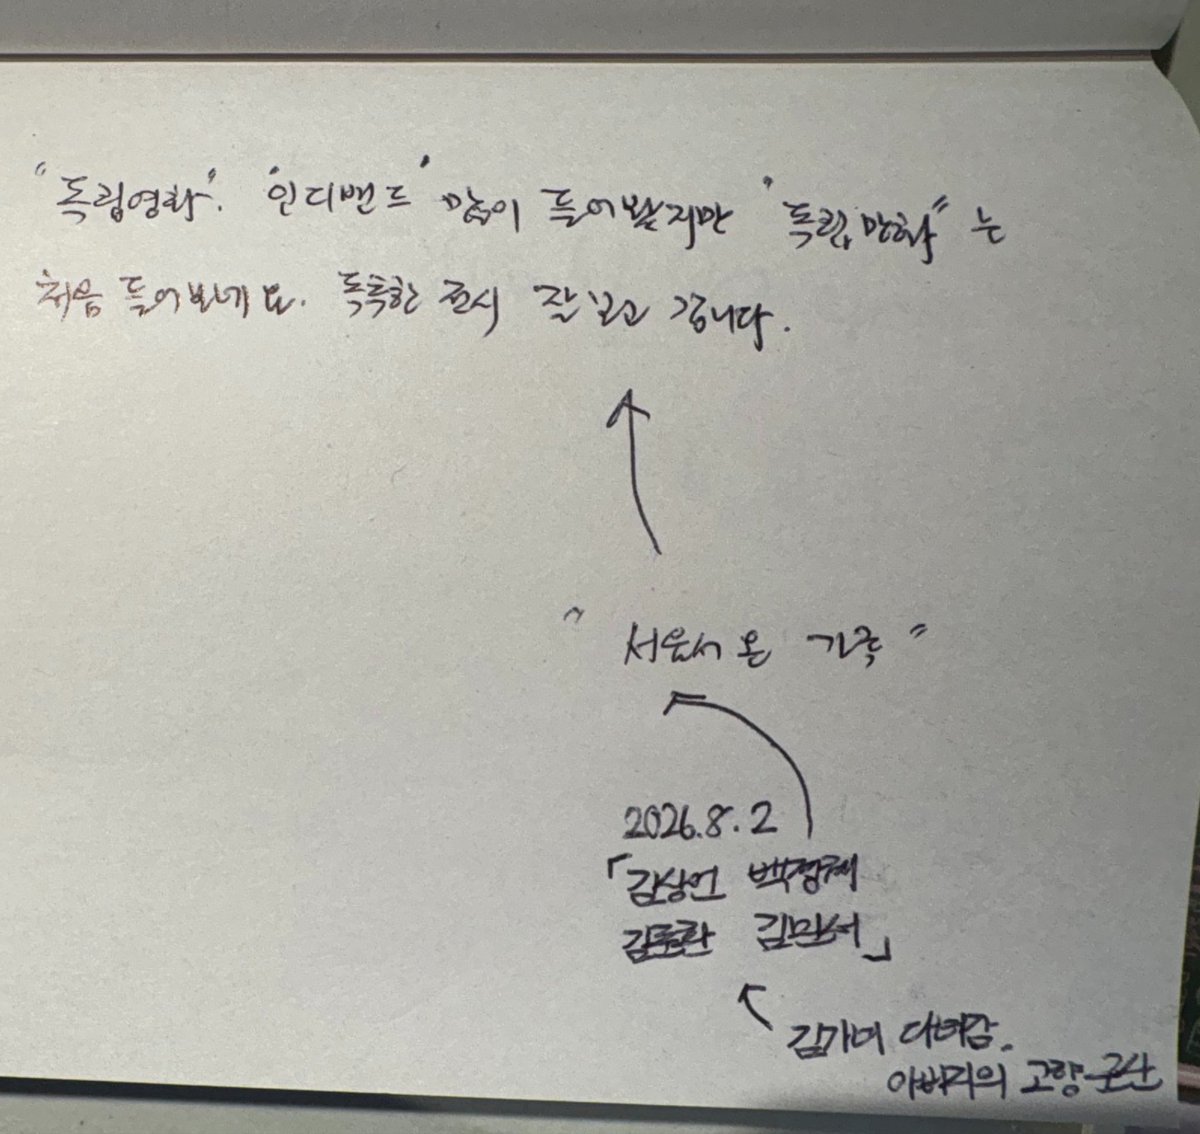 "독립영화". "인디밴드" 많이 들어봤지만 "독립만화"는
처음 들어보네요. 독특한 전시 잘 보고 갑니다.
"서울서 온 가족"
2026.8.2
「김상언
김민서」
다녀감.
아버지의 고향 군산